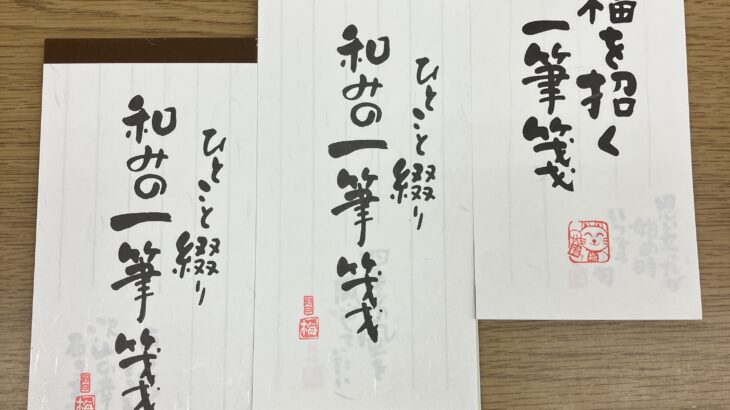 福を招く
一筆箋
ひとこと綴り
和みの一筆箋
梅
ひとこと綴り
和みの一筆箋
梅